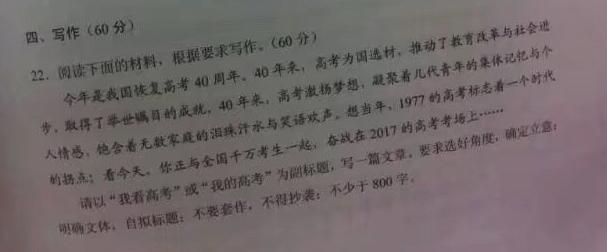 四、写作(60分)
22. 阅读下面的材料,根据要求写作。(60分)
今年是我国恢复高考40周年。40年来,高考为国选材,推动了教育改革与社会进
步,取得了举世瞩目的成就。40年来,高考激扬梦想,凝聚着几代青年的集体记忆与个
人情感,饱含着无数家庭的泪珠汗水与笑语欢声。想当年,1977的高考标志着一个时代
的拐点;看今天,你正与全国千万考生一起,奋战在2017的高考考场上……
请以“我看高考”或“我的高考”为副标题,写一篇文章。要求选好角度,确定立意;
明确文体,自拟标题;不要套作,不得抄袭;不少于800字。